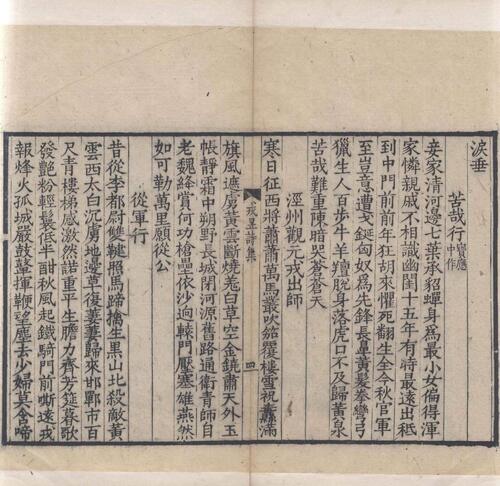 淚垂
苦哉行 寶應中作
妾家清河邊七葉承貂蟬身爲最小女偏得渾
家憐親戚不相識幽閨十五年有時最遠出秪
到中門前前年狂胡來懼死翻生全今秋官軍
至豈意遭戈鋋匈奴爲先鋒長鼻黃髮拳彎弓
獵生人百步牛羊羶脫身落虎口不及歸黃泉
苦哉難重陳暗哭蒼蒼天
涇州觀元戎出師
寒日征西將蕭蕭萬馬叢吹笳覆樓雪祝纛滿
戎昱詩集
四
旗風遮虜黃雲斷燒羌白草空金鐃肅天外玉
帳靜霜中朔野長城閉河源舊路通衛青師自
老魏絳賞何功槍壘依沙迥轅門壓塞雄燕然
如可勒萬里願從公
從軍行
昔從李都尉雙鞬照馬蹄擒生黑山北殺敵黃
雲西太白沉虜地邊草復萋萋歸來邯鄲市百
尺青樓梯感激然諾重平生膽力齊芳筵暮歌
發艷粉輕鬟低半酣秋風起鐵騎門前嘶遠戍
報烽火孤城嚴鼓鼙揮鞭望塵去少婦莫含啼